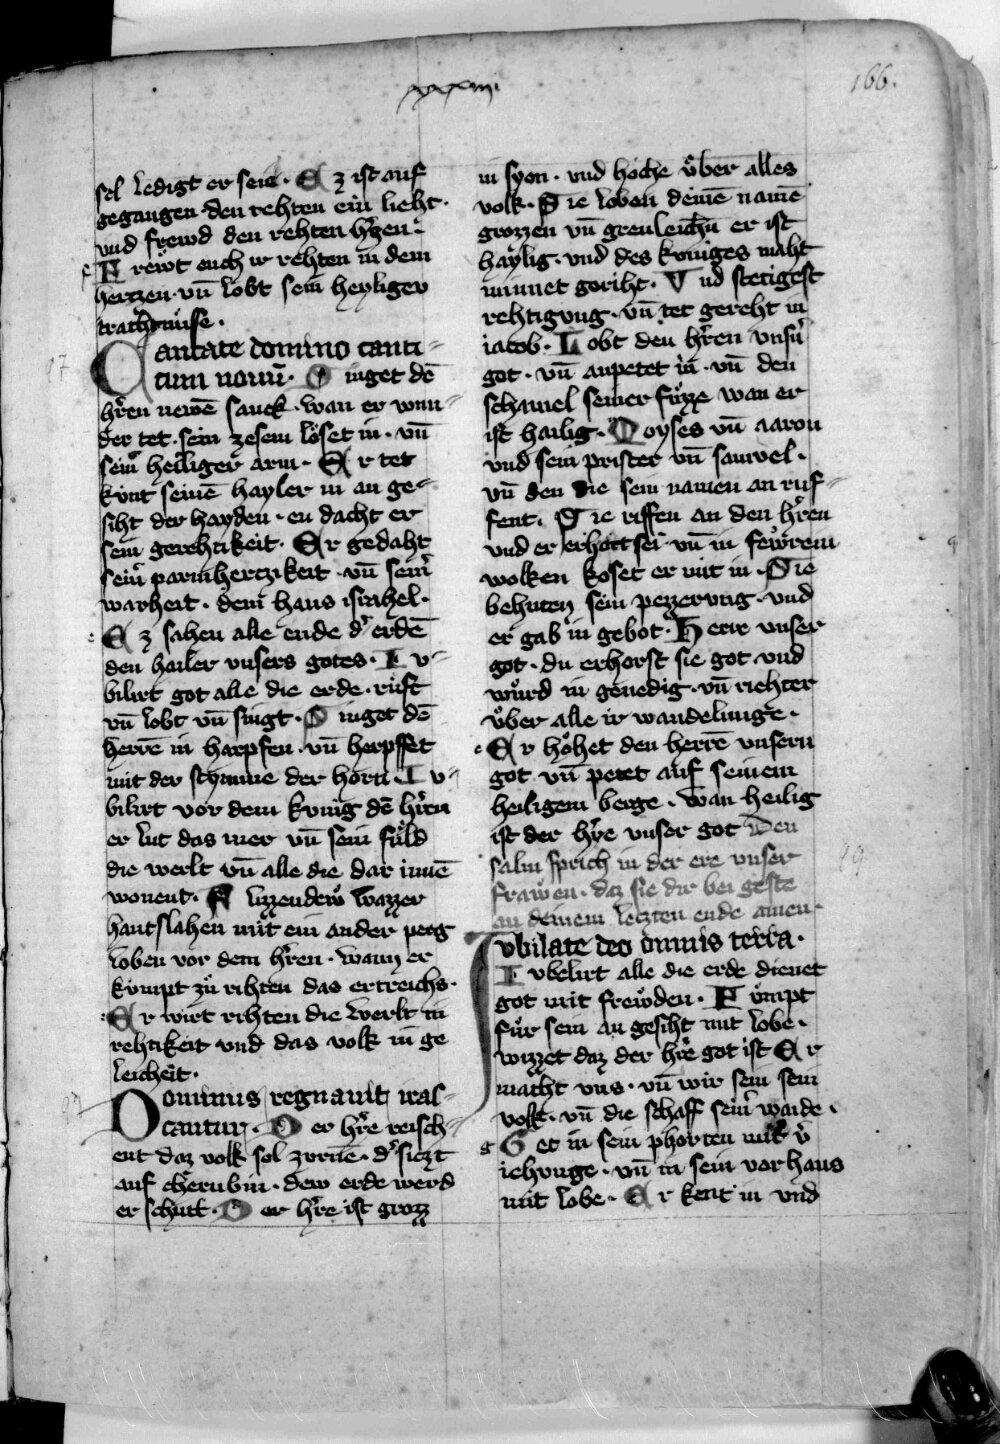 xxxiiii
166.
sel ledigt er seie · Ez ist auf
gegangen den rehten ein lieht ·
vnd frewd den rehten h'tzen ·
Frewt euch ir rehten in dem
hertzen · vn̄ lobt sein heyliger
trahtnuͤsse ·
97
Cantate domino canti-
cum nouū · Singet dē
h'ren newē sanck · wan er wun-
der tet · sein zesem loͤset in · vn̄
sein' heiliger arm · Er tet
kunt seinē hayler in an ge-
siht der hayden · en dacht er
sein gerehtikeit · Er gedaht
sein' parmhertzikeit · vn̄ sein'
warheit · dem haus israhel ·
Ez sahen alle ende d' erdē
den hailer vnsers gotes · Iv-
bilirt got alle die erde · ruft
vn̄ lobt vn̄ singt · Singet dē
herrē in harpfen · vn̄ herpffet
mit der stymme der horn · Iv-
bilirt vor dem kvnig dē h'ren
er lut das mer vn̄ sein fuͤld
die werlt vn̄ alle die dar innē
wonent · Flizzendew wazzer
hantslahen mit ein ander perg
loben vor dem h'ren · wann er
kvmpt zuͤ rihten das ertreichs ·
Er wirt rihten die werlt in
rehtikeit vnd das volk in ge
leicheit ·
Dominus regnauit iras-
cantur · Der h're reisch-
ent daz volk sol zvrnē · d' siczt
auf cherubin · dew erde werd
er schutt · Der h're ist grozz
in syon · vnd hoche uͤber alles
volk · Sie loben deinē namē
grozzen vn̄ greuleichn̄ er ist
haylig · vnd des kvniges maht
minnet geriht · Und stetigest
rehtigvng · vn̄ tet gereht in
iacob · Lobt den h'ren vnsn'
got · vn̄ anpetet in · vn̄ den
schamel seiner fuͤzze wan er
ist hailig · Moyses vn̄ aaron
vnd sein prister vn̄ samvel ·
vn̄ den die sein namen an ruf-
fent · Sie riffen an den h'ren
vnd er erhort sei vn̄ in fewrein
wolken koset er mit in · Sie
behuten sein pezzervng · vnd
er gab in gebot · Herr vnser
got · du erhorst sie got vnd
wuͤrd in genedig · vn̄ richter
uͤber alle ir wandelunge ·
Er hoͤhet den herrē vnsern
got vn̄ petet auf seinem
heiligem berge · wan heilig
ist der h're vnser got Den
salm sprich in der ere vnser
frawen · daz sie dir bei geste
an deinem letzten ende amen
99
Jvbilate deo omnis terra ·
Ivbelirt alle die erde dienet
got mit frewden · Kuͤmpt
fuͤr sein an gesiht mit lobe ·
wizzet daz der h're got ist Er
macht vns · vn̄ wir sein sein
volk · vn̄ die schaff sein' waide ·
Get in sein phorten mit v'
iehvnge · vn̄ in sein vorhaus
mit lobe · Er kent in vnd